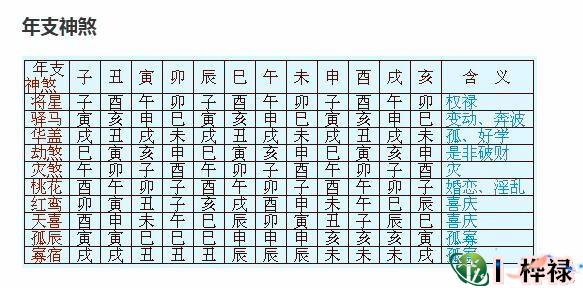 年支神煞
年支 子 丑 寅 卯 辰 巳 午 未 申 酉 戌 亥 含 义
神煞
将星 子 酉 午 卯 子 酉 午 卯 子 酉 午 卯 权禄
驿马 寅 亥 申 巳 寅 亥 申 巳 寅 亥 申 巳 变动、奔波
华盖 戌 丑 戌 未 戌 丑 戌 未 戌 丑 戌 未 孤、好学
劫煞 巳 寅 亥 申 巳 寅 亥 申 巳 寅 亥 申 是非破财
灾煞 午 卯 子 酉 午 卯 子 酉 午 卯 子 酉 灾
桃花 酉 午 卯 子 酉 午 卯 子 酉 午 卯 子 婚恋、淫乱
红鸾 卯 寅 丑 子 亥 戌 酉 申 未 午 巳 辰 喜庆
天喜 酉 申 未 午 巳 辰 卯 寅 丑 子 亥 戌 喜庆
孤辰 寅 寅 巳 巳 巳 申 申 申 亥 亥 亥 寅 孤寡
寡宿 戌 戌 丑 丑 丑 辰 辰 辰 未 未 未 戌 孤寡
桦禄